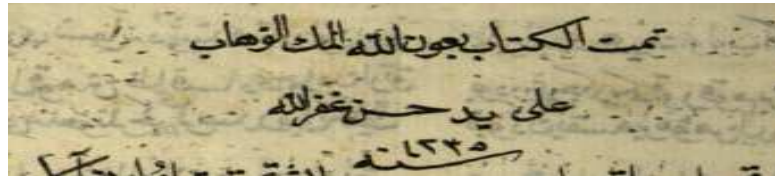 تمت الكتاب بعون الله الملك الوهاب
على يد حسن غفر الله
سنه ١٢٣٥